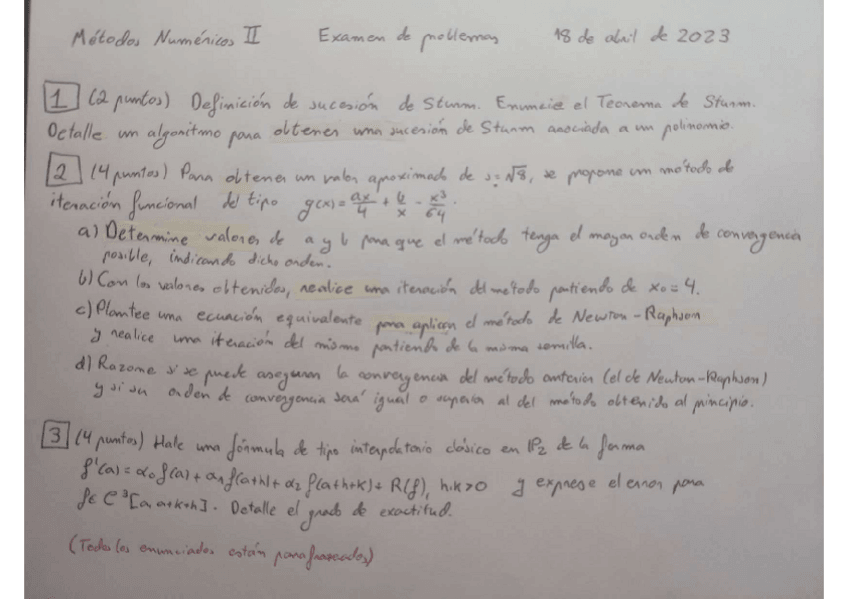 Métodos Numéricos II Examen de problemas 18 de abril de 2023
1 (2 puntos) Definición de sucesión de Sturm. Enuncie el Teorema de Sturm.
Detalle un algoritmo para obtener una sucesión de Sturm asociada a un polinomio.
2 (4 puntos) Para obtener un valor aproximado de s=√8, se propone un método de
iteración funcional del tipo g(x)=ax/4 + b/x - x³/64.
a) Determine valores de a y b para que el método tenga el mayor orden de convergencia
posible, indicando dicho orden.
b) Con los valores obtenidos, realice una iteración del método partiendo de x₀=4.
c) Plantee una ecuación equivalente para aplicar el método de Newton-Raphson
y realice una iteración del mismo partiendo de la misma semilla.
d) Razone si se puede asegurar la convergencia del método anterior (el de Newton-Raphson)
y si su orden de convergencia será igual o superior al del método obtenido al principio.
3 (4 puntos) Halle una fórmula de tipo interpolatorio clásico en P₂ de la forma
f'(a)= α₀f(a)+ α₁f(a+h)+ α₂ f(a+h+k)+ R(f), h,k>0 y exprese el error para
f∈ C³[a, a+k+h]. Detalle el grado de exactitud.
(Todos los enunciados están parafraseados)